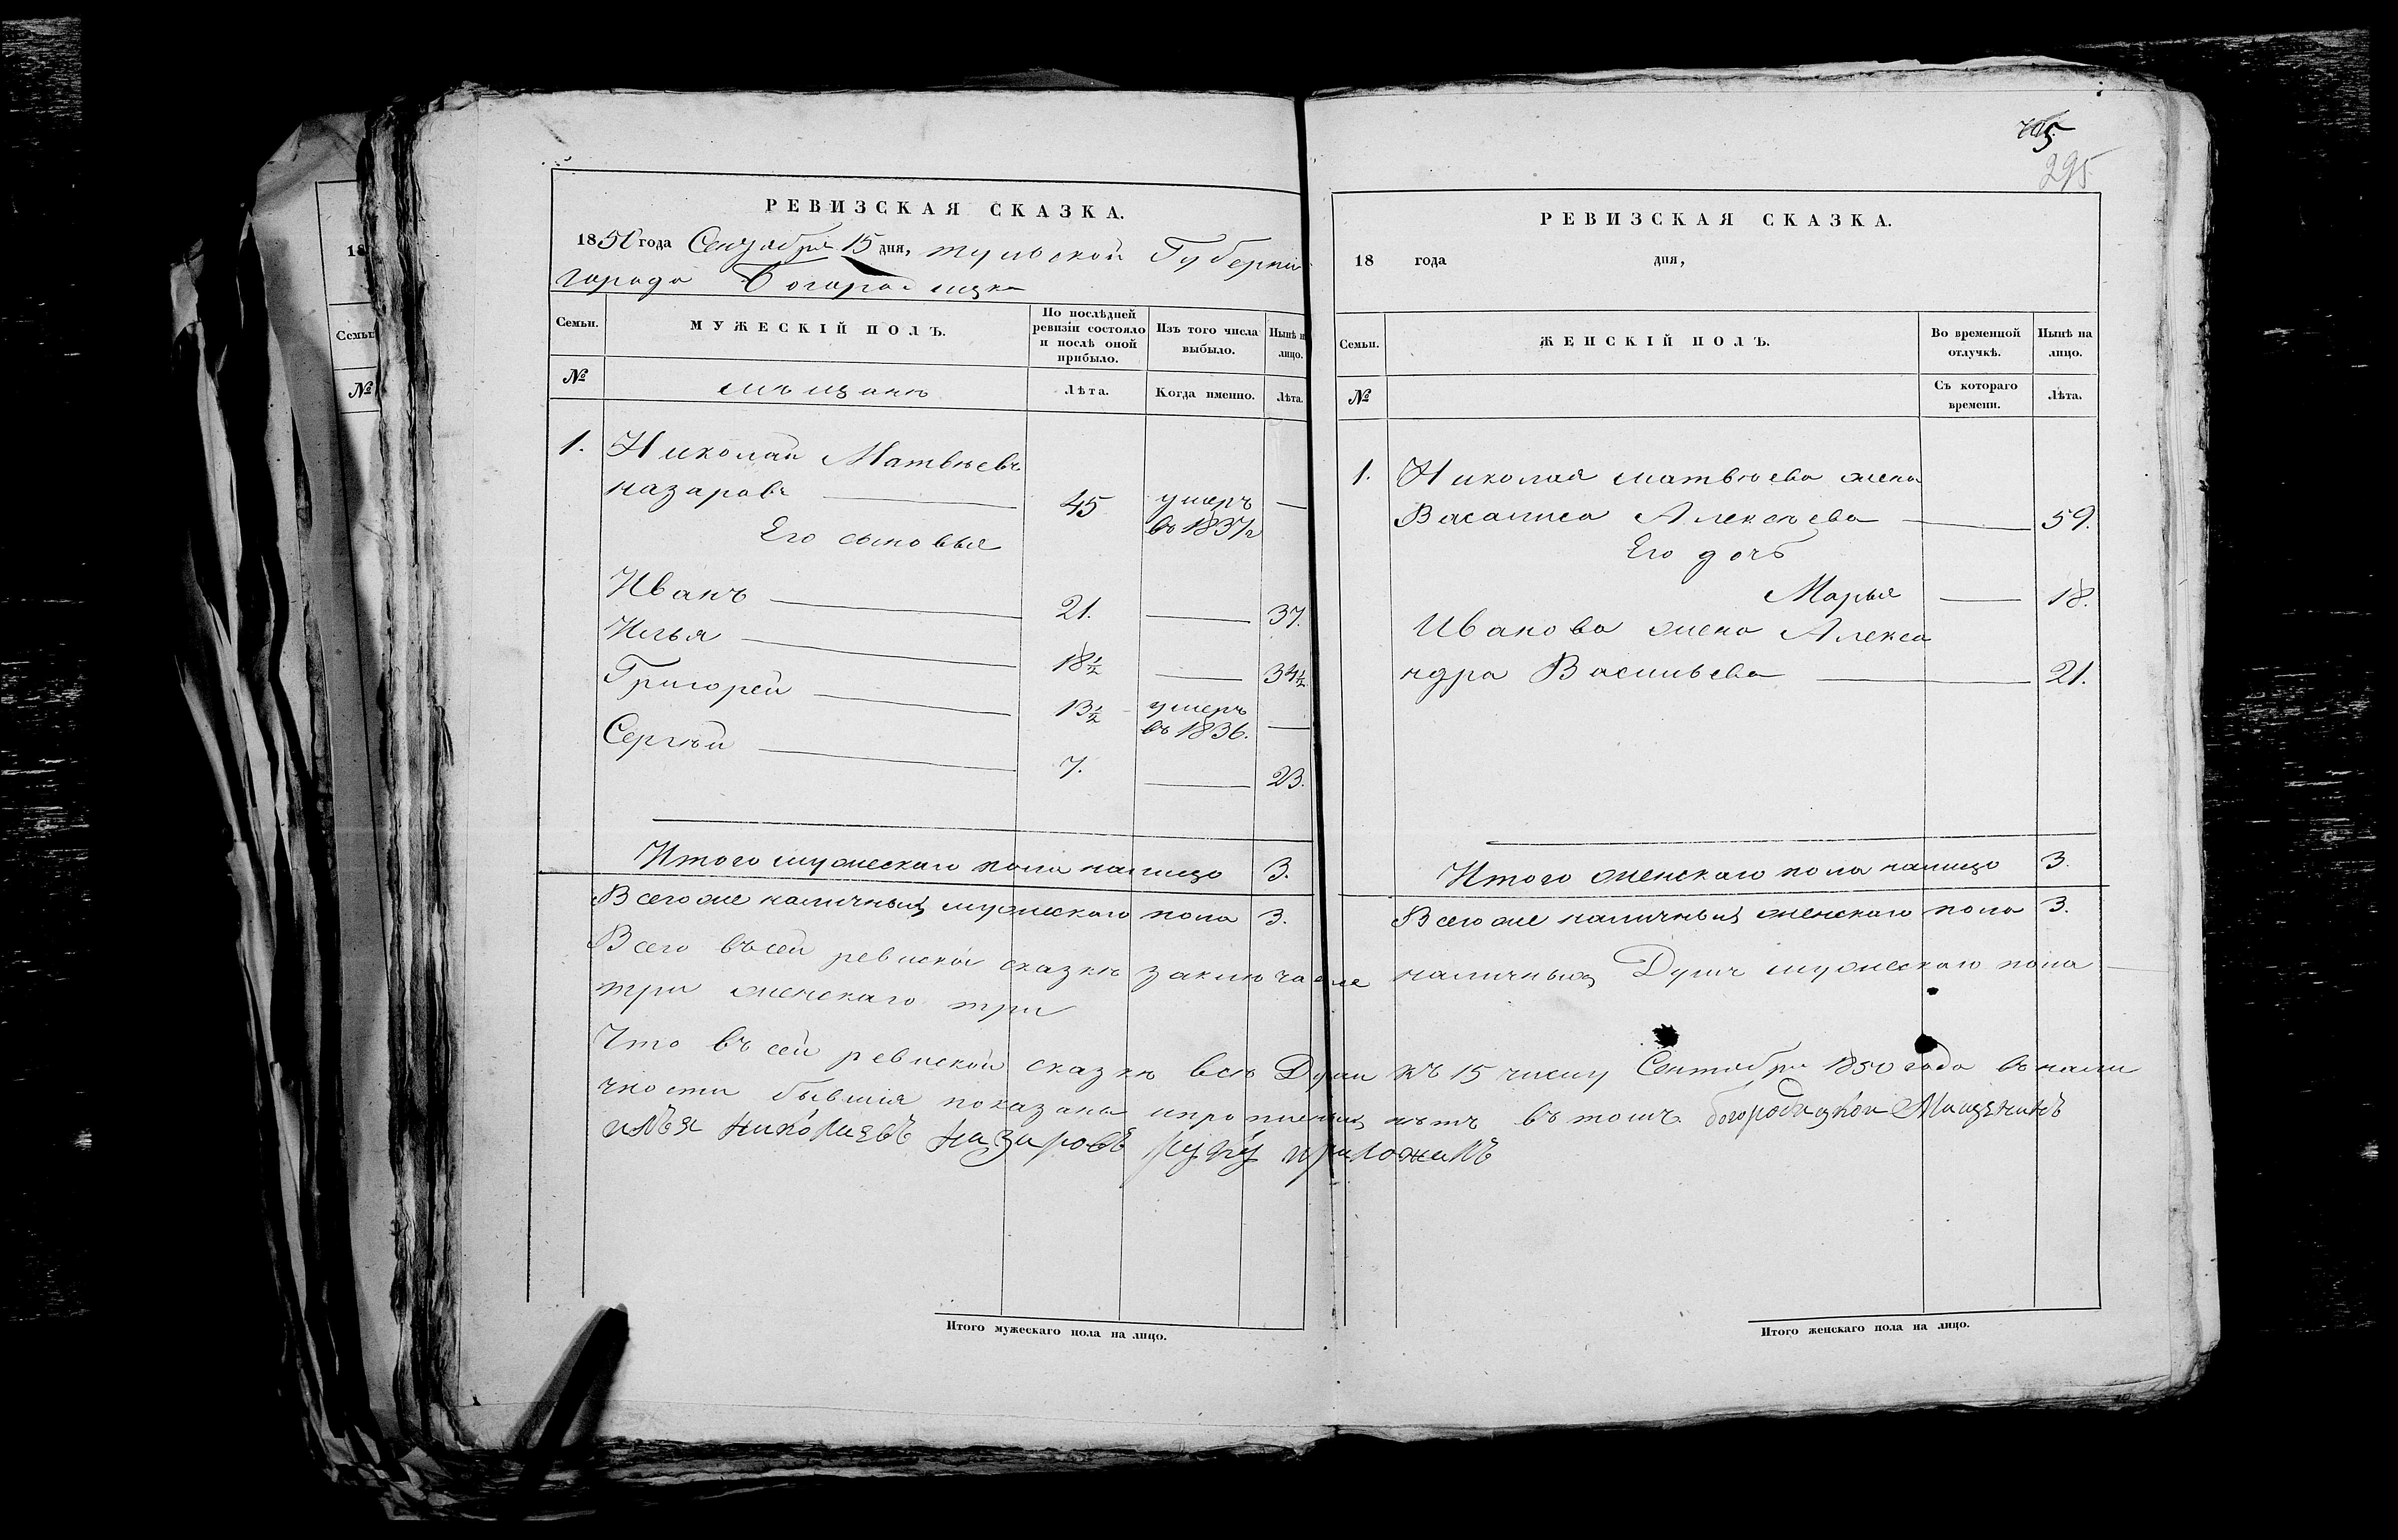 РЕВИЗСКАЯ СКАЗКА.
1850 года Сентября 15 дня, тульской Губерніи
города Богородицка
Семьи.
МУЖЕСКІЙ ПОЛЪ.
По послѣдней ревизіи состояло и послѣ оной прибыло.
Изъ того числа выбыло.
Нынѣ на лицо.
№
мѣщане
Лѣта.
Когда именно.
Лѣта.
1. Николай Матвѣевъ
назаровъ 45 умеръ въ 1837/2 —
Его сыновья
Иванъ 21. — 37.
Илья 18½ — 34½
Григорей 13½ умеръ въ 1836. —
Сергѣй 7. — 23.
Итого мужескаго пола налицо 3.
Всего же наличныхъ мужескаго пола 3.
РЕВИЗСКАЯ СКАЗКА.
18 года дня,
Семьи.
ЖЕНСКІЙ ПОЛЪ.
Во временной отлучкѣ.
Нынѣ на лицо.
№
Съ котораго времени.
Лѣта.
1. Николая матвѣева жена
Васалиса Алексѣева — 59.
Его дочь
Марья — 18.
Иванова жена Алекса
ндра Васильева — 21.
Итого женскаго пола налицо 3.
Всего же наличныхъ женскаго пола 3.
Всего въ сей ревиской сказкѣ заключ наличныхъ Душъ мужескаго пола
три женскаго три
Что въ сей ревиской сказкѣ всѣ Души къ 15 числу Сентября 1850 года въ нали
чности бывшия показаны нѣтъ въ томъ богородицкой Мищенинъ
илья николаевъ назаровъ руку приложилъ
Итого мужескаго пола на лицо.
Итого женскаго пола на лицо.
295